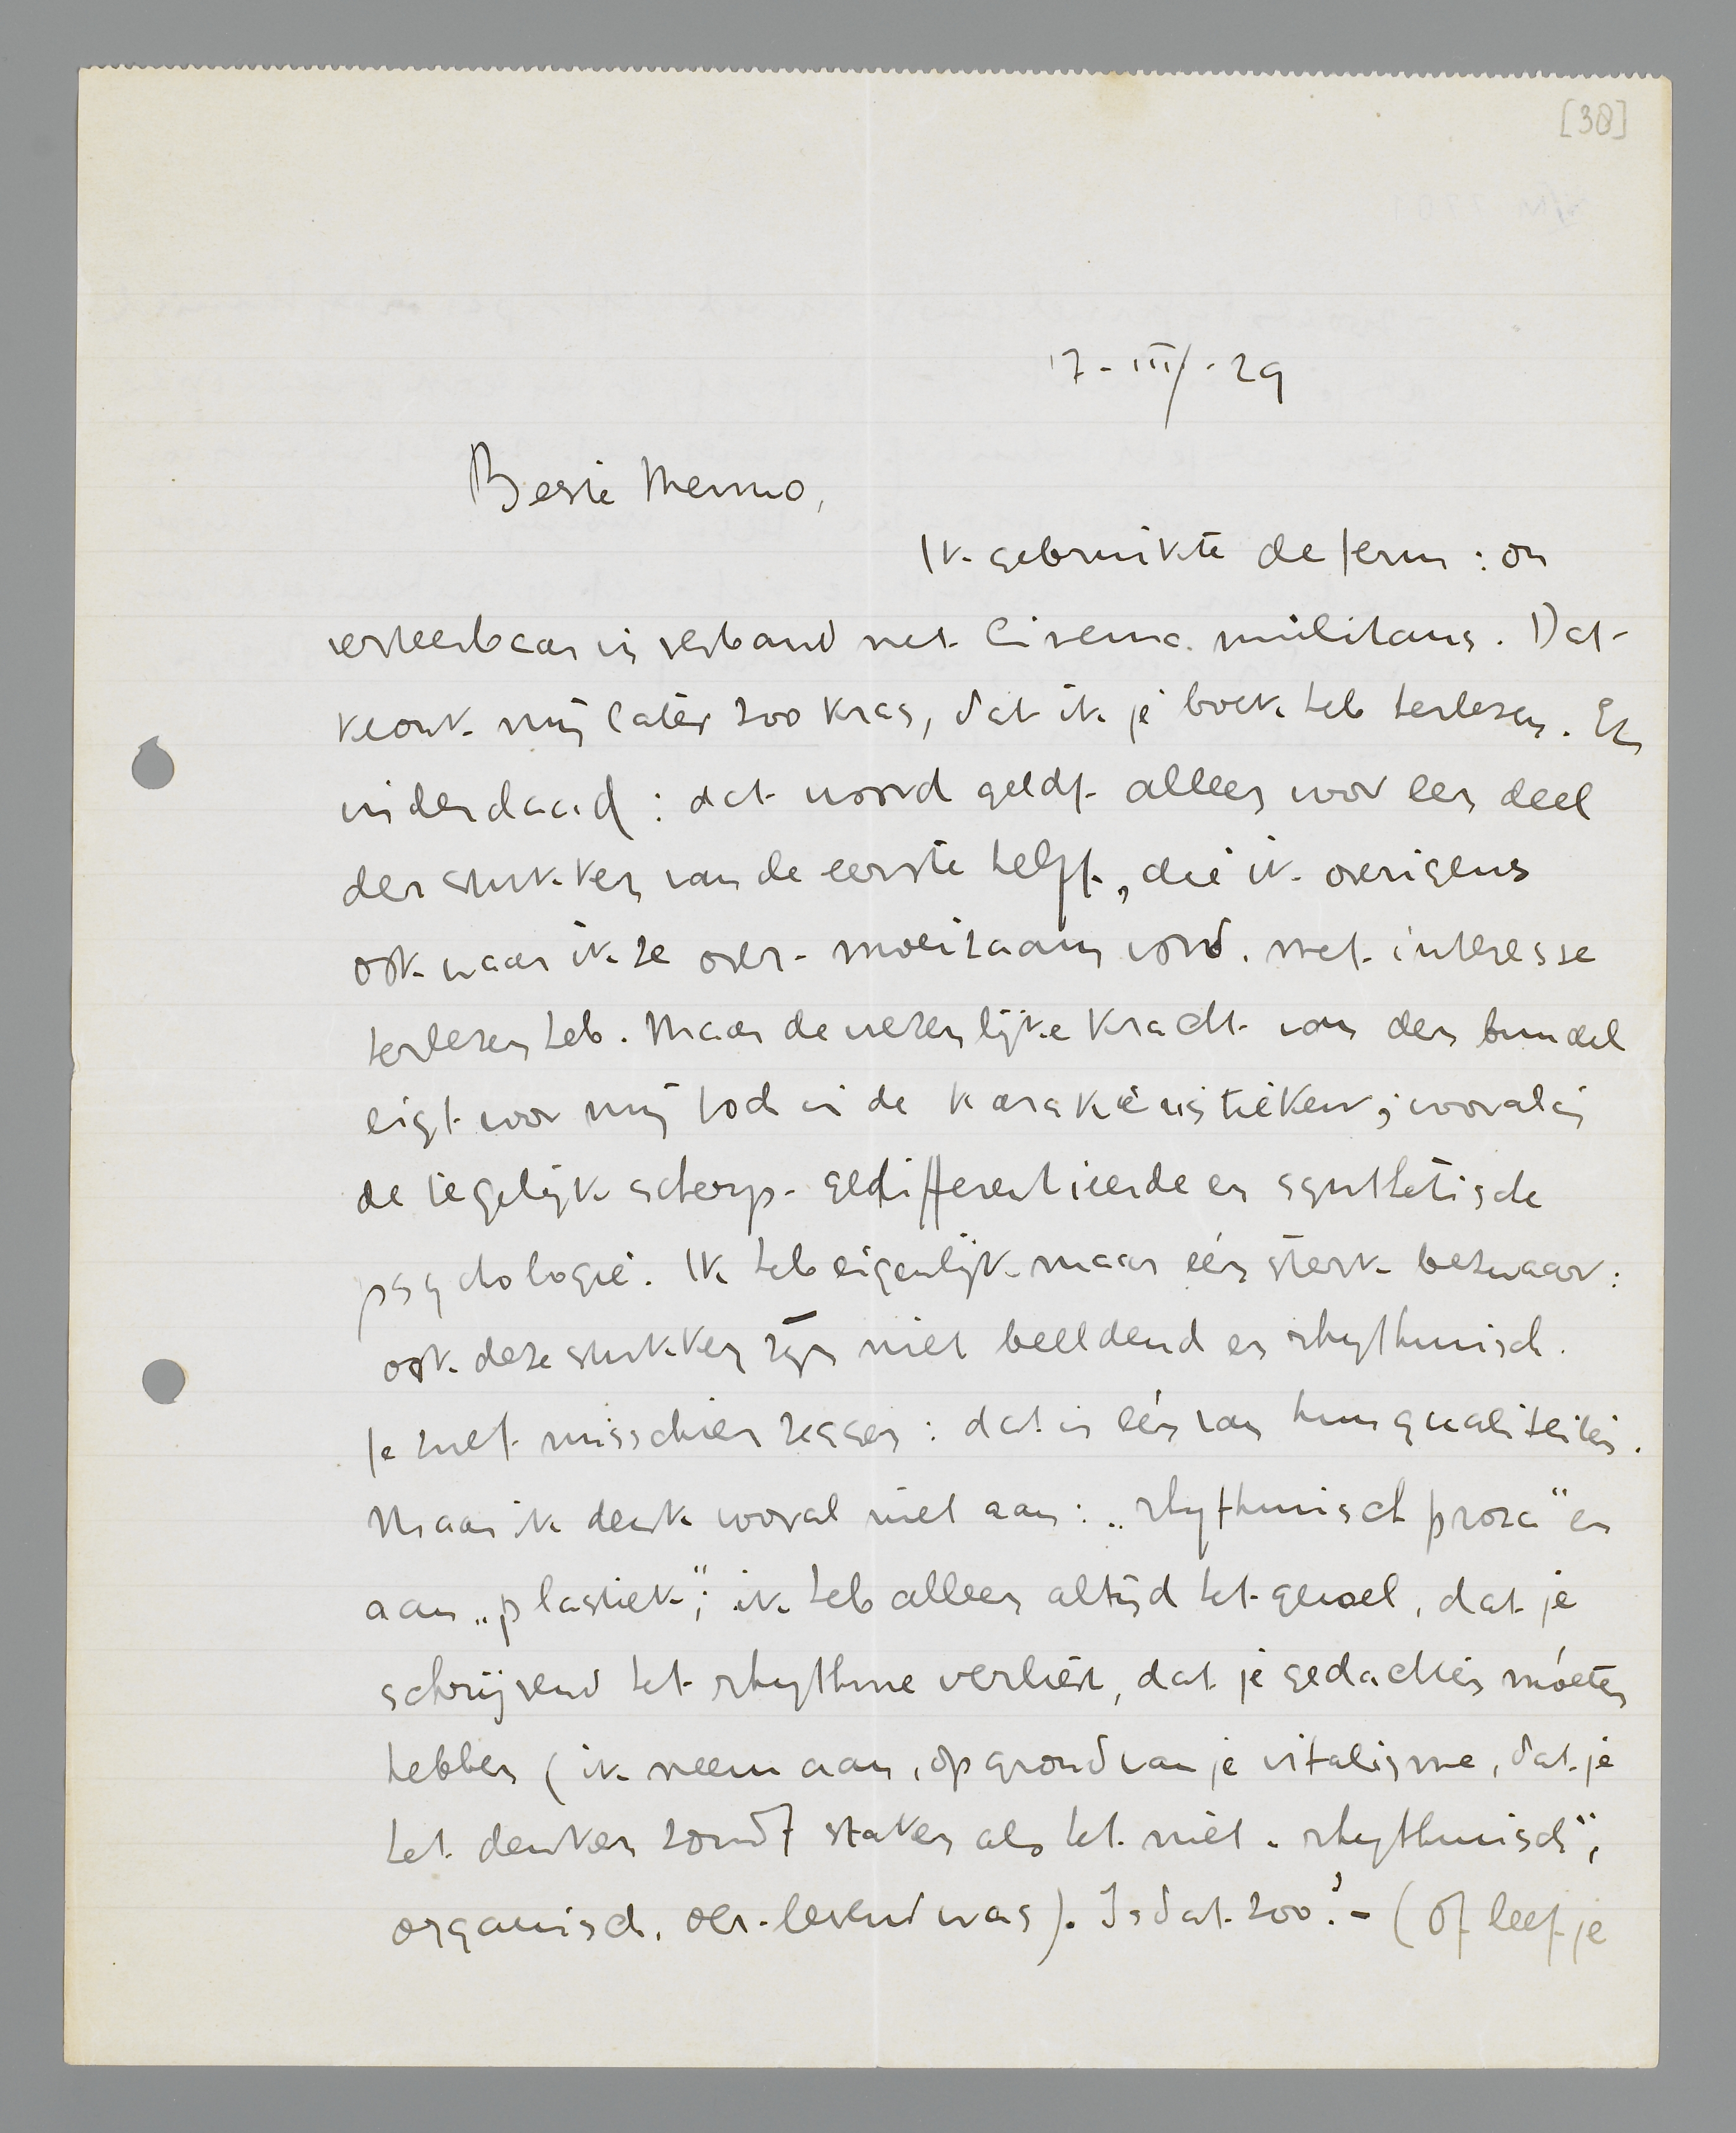 [38]
17-III/-29
Beste Menno,
Ik gebruikte de term: on
verteerbaar in verband met Cinema militans. Dat
klonk mij later zoo kras, dat ik je boek heb herlezen. En
inderdaad: dat woord geldt alleen voor een deel
der stukken van de eerste helft, die ik overigens
ook waar ik ze over-moeizaam vond, met interesse
herlezen heb. Maar de wezenlijke kracht van den bundel
ligt voor mij toch in de karakteristieken; vooral in
de tegelijk scherp-gedifferentieerde en synthetische
psychologie. Ik heb eigenlijk maar één sterk bezwaar:
ook deze stukken zijn niet beeldend en rhythmisch.
Je zult misschien zeggen: dat is één van hun qualiteiten.
Maar ik denk vooral niet aan: „rhythmisch proza" en
aan „plastiek"; ik heb alleen altijd het gevoel, dat je
schrijvend het rhythme verliest, dat je gedachten móeten
hebben (ik neem aan, op grond van je vitalisme, dat je
het denken zoudt staken als het niet „rhythmisch",
organisch, oer-levend was). Is dat zoo? - (Of leef je